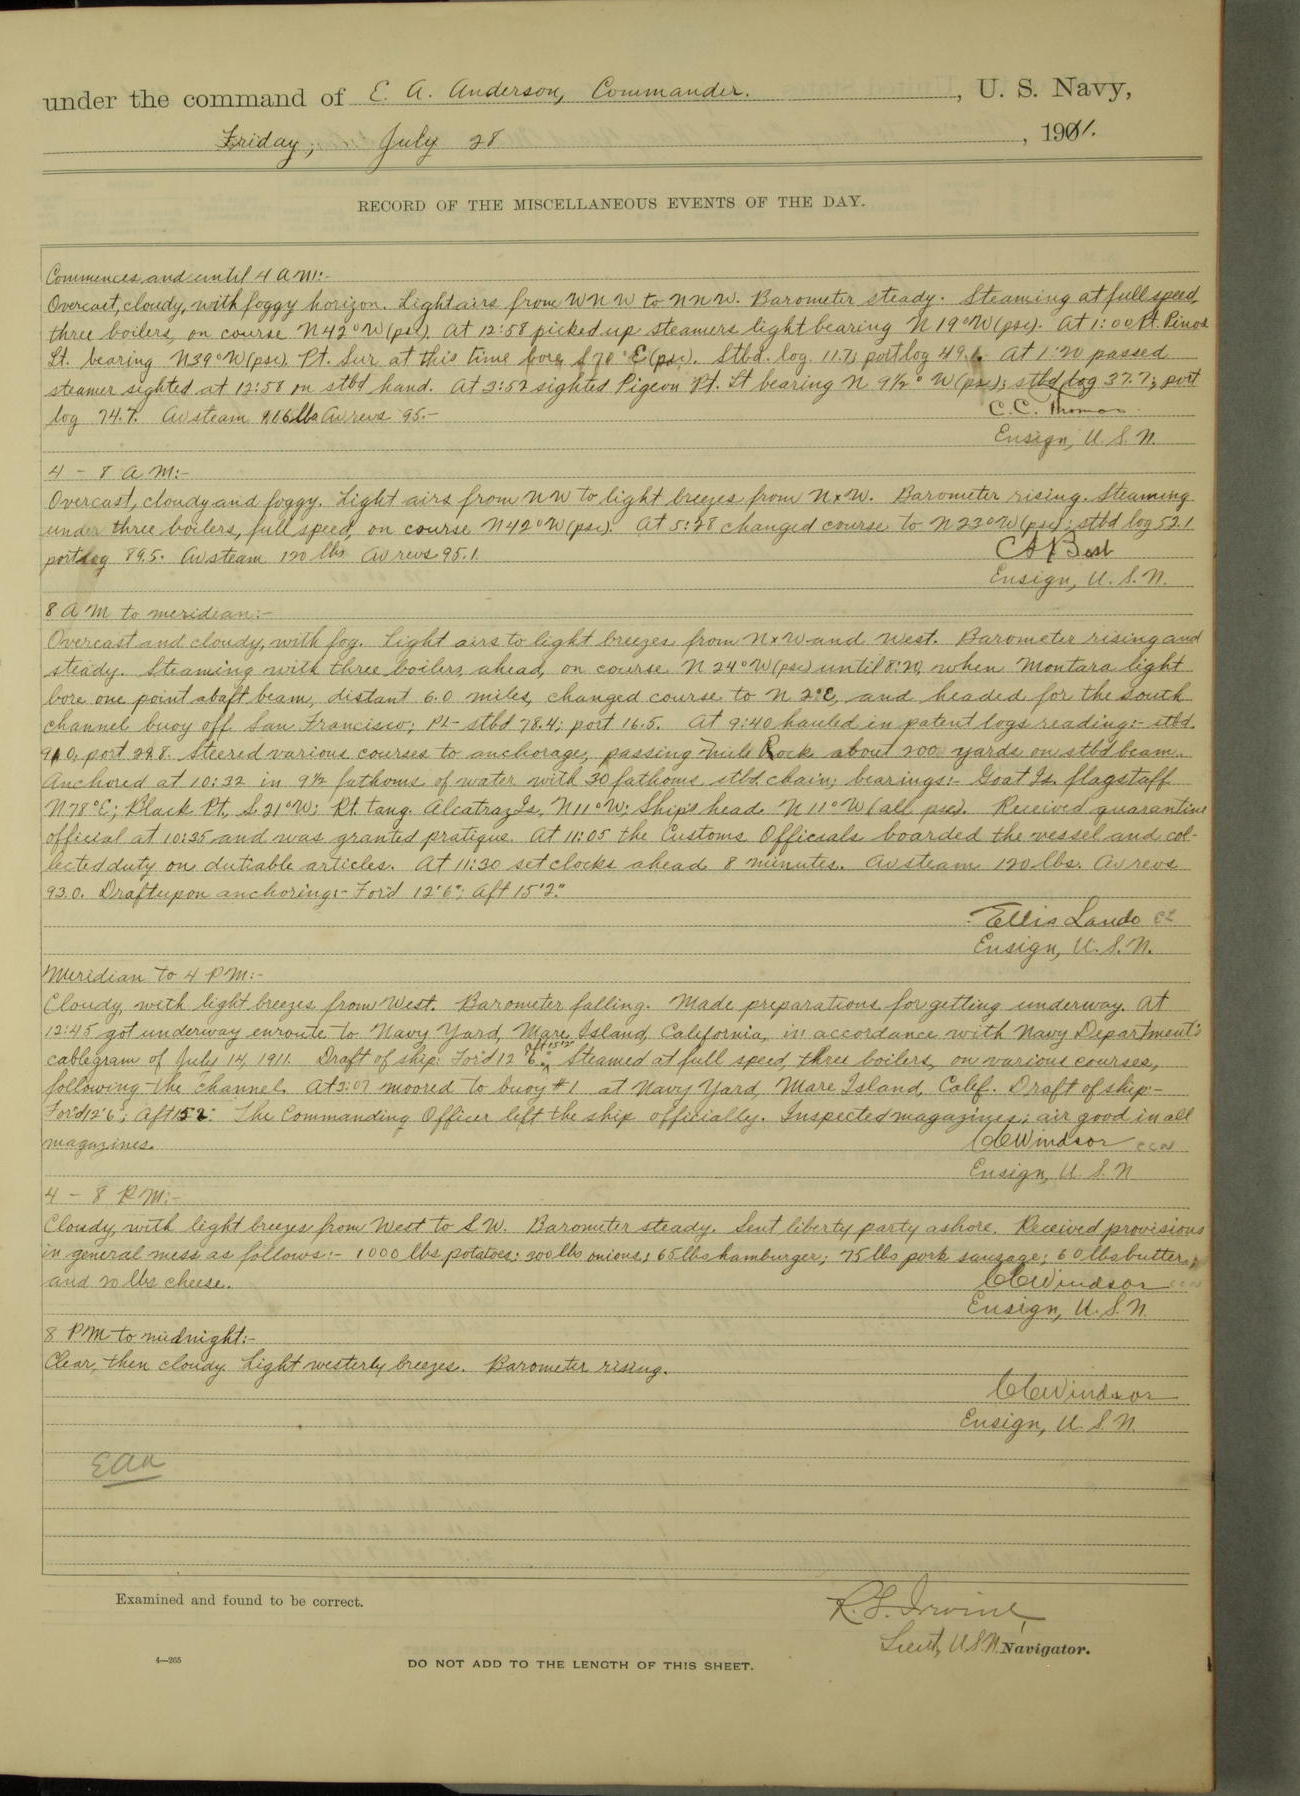 under the command of E. A. Anderson, Commander. , U. S. Navy,
Friday, July 28 , 1911.
RECORD OF THE MISCELLANEOUS EVENTS OF THE DAY.
Commences and until 4 A M:-
Overcast, cloudy, with foggy horizon. Light airs from WNW to NNW. Barometer steady. Steaming at full speed,
three boilers, on course N42°W (psc). At 12:58 picked up steamers light bearing N 19°W (psc). At 1:00 Pt. Pinos
Lt. bearing N39°W (psc). Pt. Sur at this time bore S 70°E (psc). Stbd. log. 11.7; port log 49.1. At 1:20 passed
steamer sighted at 12:58 on stbd hand. At 3:52 sighted Pigeon Pt. Lt bearing N 9½° W (psc); stbd log 37.7; port
log 74.7. Av steam 116 lbs Av revs 95.-
C. C. Thomas
Ensign, U. S. N.
4 - 8 A M:-
Overcast, cloudy and foggy. Light airs from NW to light breezes from NxW. Barometer rising. Steaming
under three boilers, full speed, on course N42°W (psc). At 5:28 changed course to N23°W (psc); stbd log 52.1
port log 89.5. Av steam 120 lbs Av revs 95.1
Best
Ensign, U. S. N.
8 A M to meridian:-
Overcast and cloudy, with fog. Light airs to light breezes from NxW and West. Barometer rising and
steady. Steaming with three boilers, ahead, on course N 24°W (psc) until 8:20, when Montara light
bore one point abaft beam, distant 6.0 miles, changed course to N 2°E, and headed for the south
channel buoy off San Francisco; PL- stbd 78.4; port 16.5. At 9:40 hauled in patent logs reading:- stbd.
91.0; port 29.8. Steered various courses to anchorage, passing Mile Rock about 200 yards on stbd beam.
Anchored at 10:32 in 9½ fathoms of water with 30 fathoms stbd chain; bearings:- Goat Is. flagstaff
N78°E; Black Pt., S.21°W; Rt. tang. Alcatraz Is., N11°W; Ship's head N11°W (all psc). Received quarantine
official at 10:35 and was granted pratique. At 11:05 the Customs Officials boarded the vessel and col-
lected duty on dutiable articles. At 11:30 set clocks ahead 8 minutes. Av steam 120 lbs. Av revs
93.0. Draft upon anchoring:- For'd 12'6"; Aft 15'2"
Ellis Lando
Ensign, U. S. N.
Meridian to 4 P M:-
Cloudy, with light breezes from West. Barometer falling. Made preparations for getting underway. At
12:45 got underway enroute to Navy Yard, Mare Island, California, in accordance with Navy Department's
cablegram of July 14, 1911. Draft of ship: For'd 12'6", Aft 15'2" Steamed at full speed, three boilers, on various courses,
following the channel. At 3:07 moored to buoy #1 at Navy Yard, Mare Island, Calif. Draft of ship:-
For'd 12'6"; Aft 15'2". The Commanding Officer left the ship officially. Inspected magazines; air good in all
magazines.
C C Windsor
Ensign, U. S. N
4 - 8 P. M:-
Cloudy, with light breezes from West to S.W. Barometer steady. Sent liberty party ashore. Received provisions
in general mess as follows:- 1000 lbs potatoes; 300 lbs onions; 65 lbs hamburger; 75 lbs pork sausage; 60 lbs butter;
and 20 lbs cheese.
C C Windsor
Ensign, U. S. N.
8 P M to midnight:-
Clear, then cloudy Light westerly breezes. Barometer rising.
C C Windsor
Ensign, U. S. N.
EAA
Examined and found to be correct.
R. L. Irvine,
Lieut, U S N. Navigator.
4—265
DO NOT ADD TO THE LENGTH OF THIS SHEET.